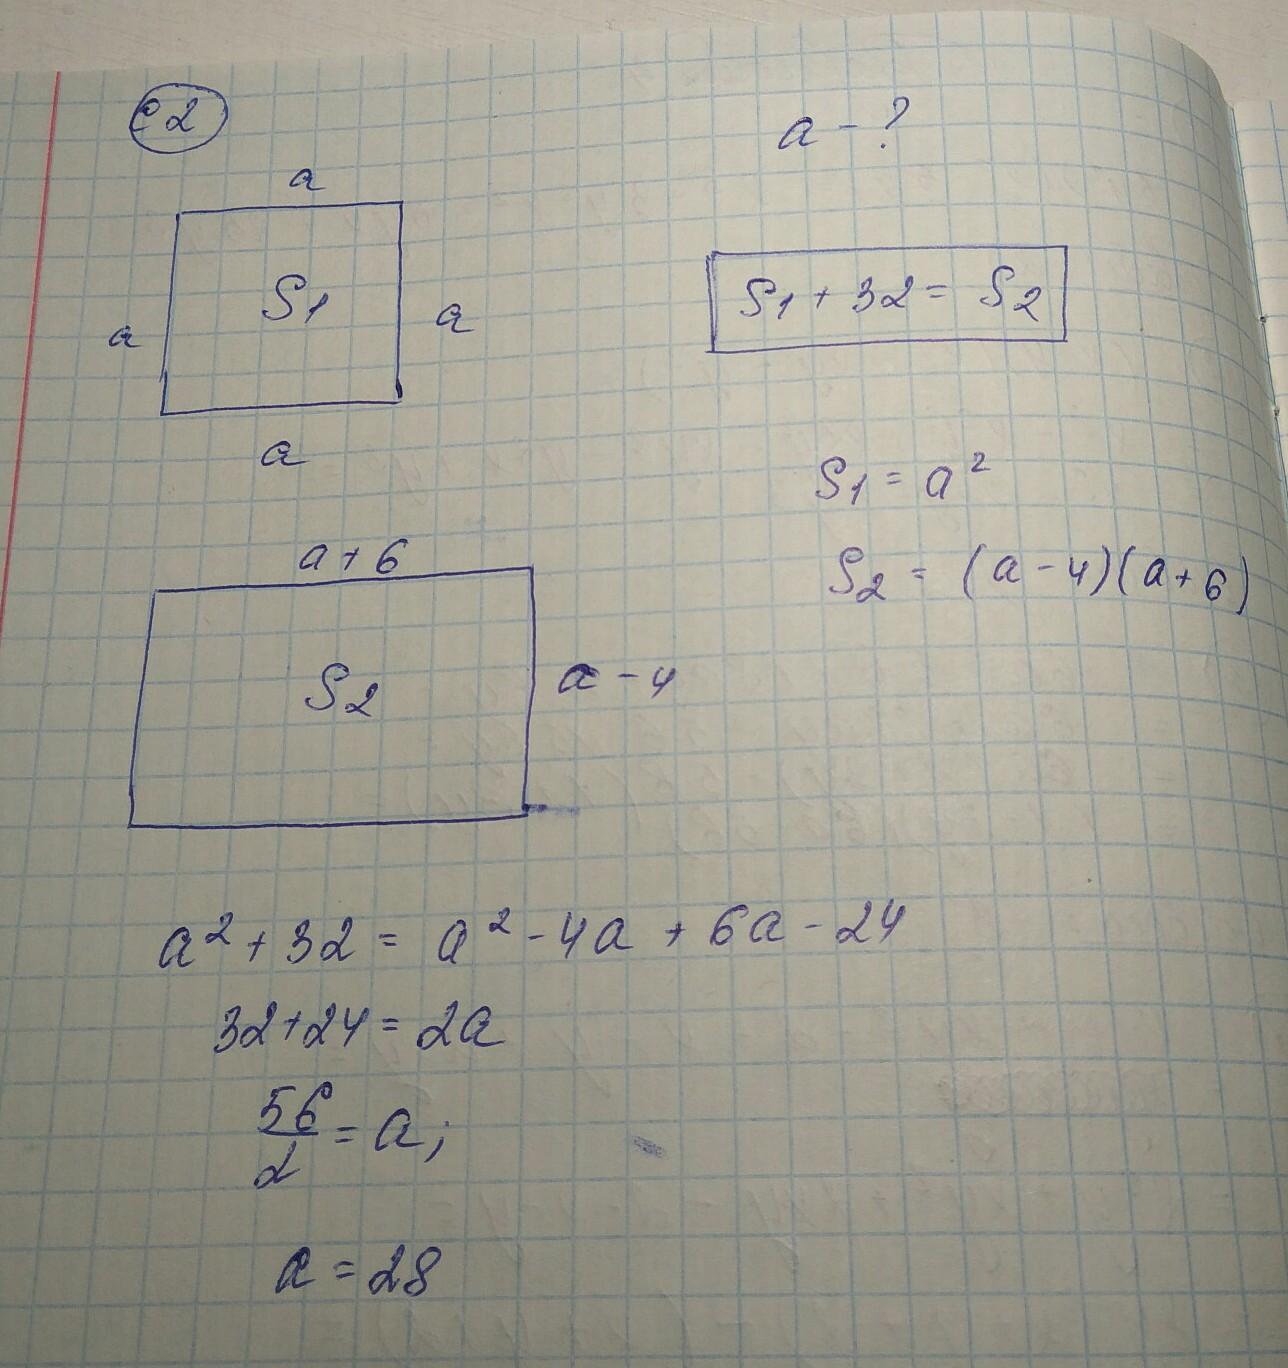 с2
a - ?
a
S1
a
a
a
S1 + 32 = S2
S1 = a²
S2 = (a - 4)(a + 6)
a + 6
S2
a - 4
a² + 32 = a² - 4a + 6a - 24
32 + 24 = 2a
56/2 = a;
a = 28